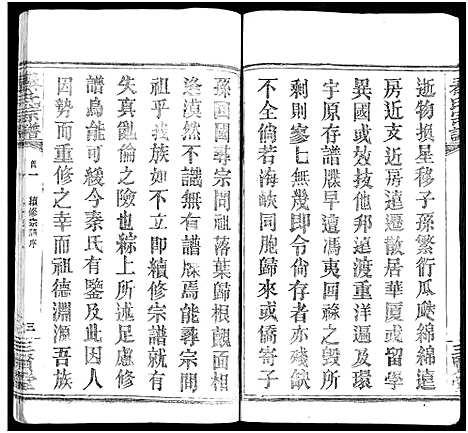 秦氏宗譜
逝物換星移子孫繁衍瓜瓞綿綿遠
房近支亦屢遷散居華厦或留學
異國或效技他邦遠渡重洋遍及環
宇原存譜牒早遭馮夷回祿之毀所
剩則寥七無幾即令存者亦殘缺
不全倘若海峽同胞歸來或僑寄子
孫回國尋宗問祖落葉歸根覿面相
逢漠然不識無有譜牒焉能尋宗問
祖乎我族如不立即續修宗譜就有
失真亂倫之慨也綜上所述足慮修
譜烏能可緩今秦氏有鑒及此幷
因勢而重修之幸而祖德淵源吾族
秦氏宗譜
首一
續修宗譜序
三
三賢堂